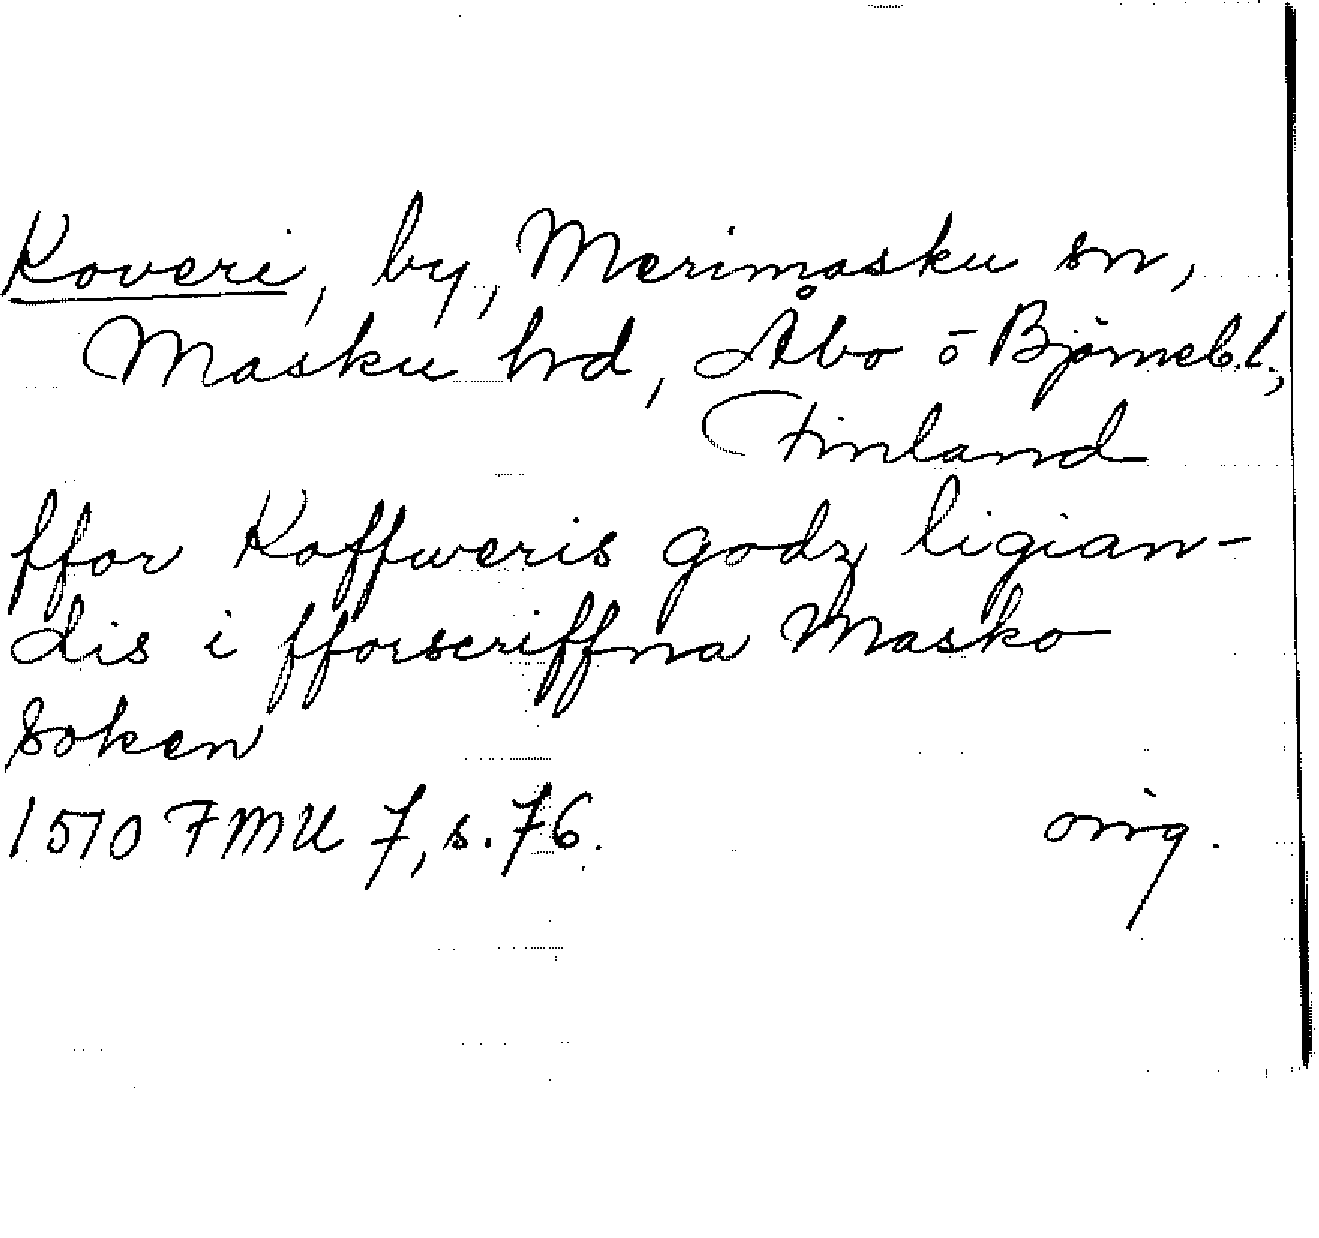 Koveri, by, Merimasku sn,
Masku hrd, Åbo o Björneb.l.,
Finland
ffor Koffweris godz ligian-
dis i fforscriffna Masko
Soken
1510 FMU 7, s. 76. orig.